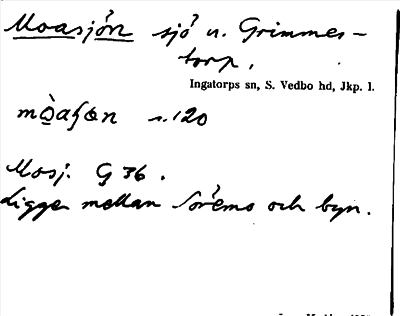 Moasjön sjö n. Grimmes-
torp.
Ingatorps sn, S. Vedbo hd, Jkp. l.
s. 120
Mosj. G 36.
Ligger mellan Söremo och byn.